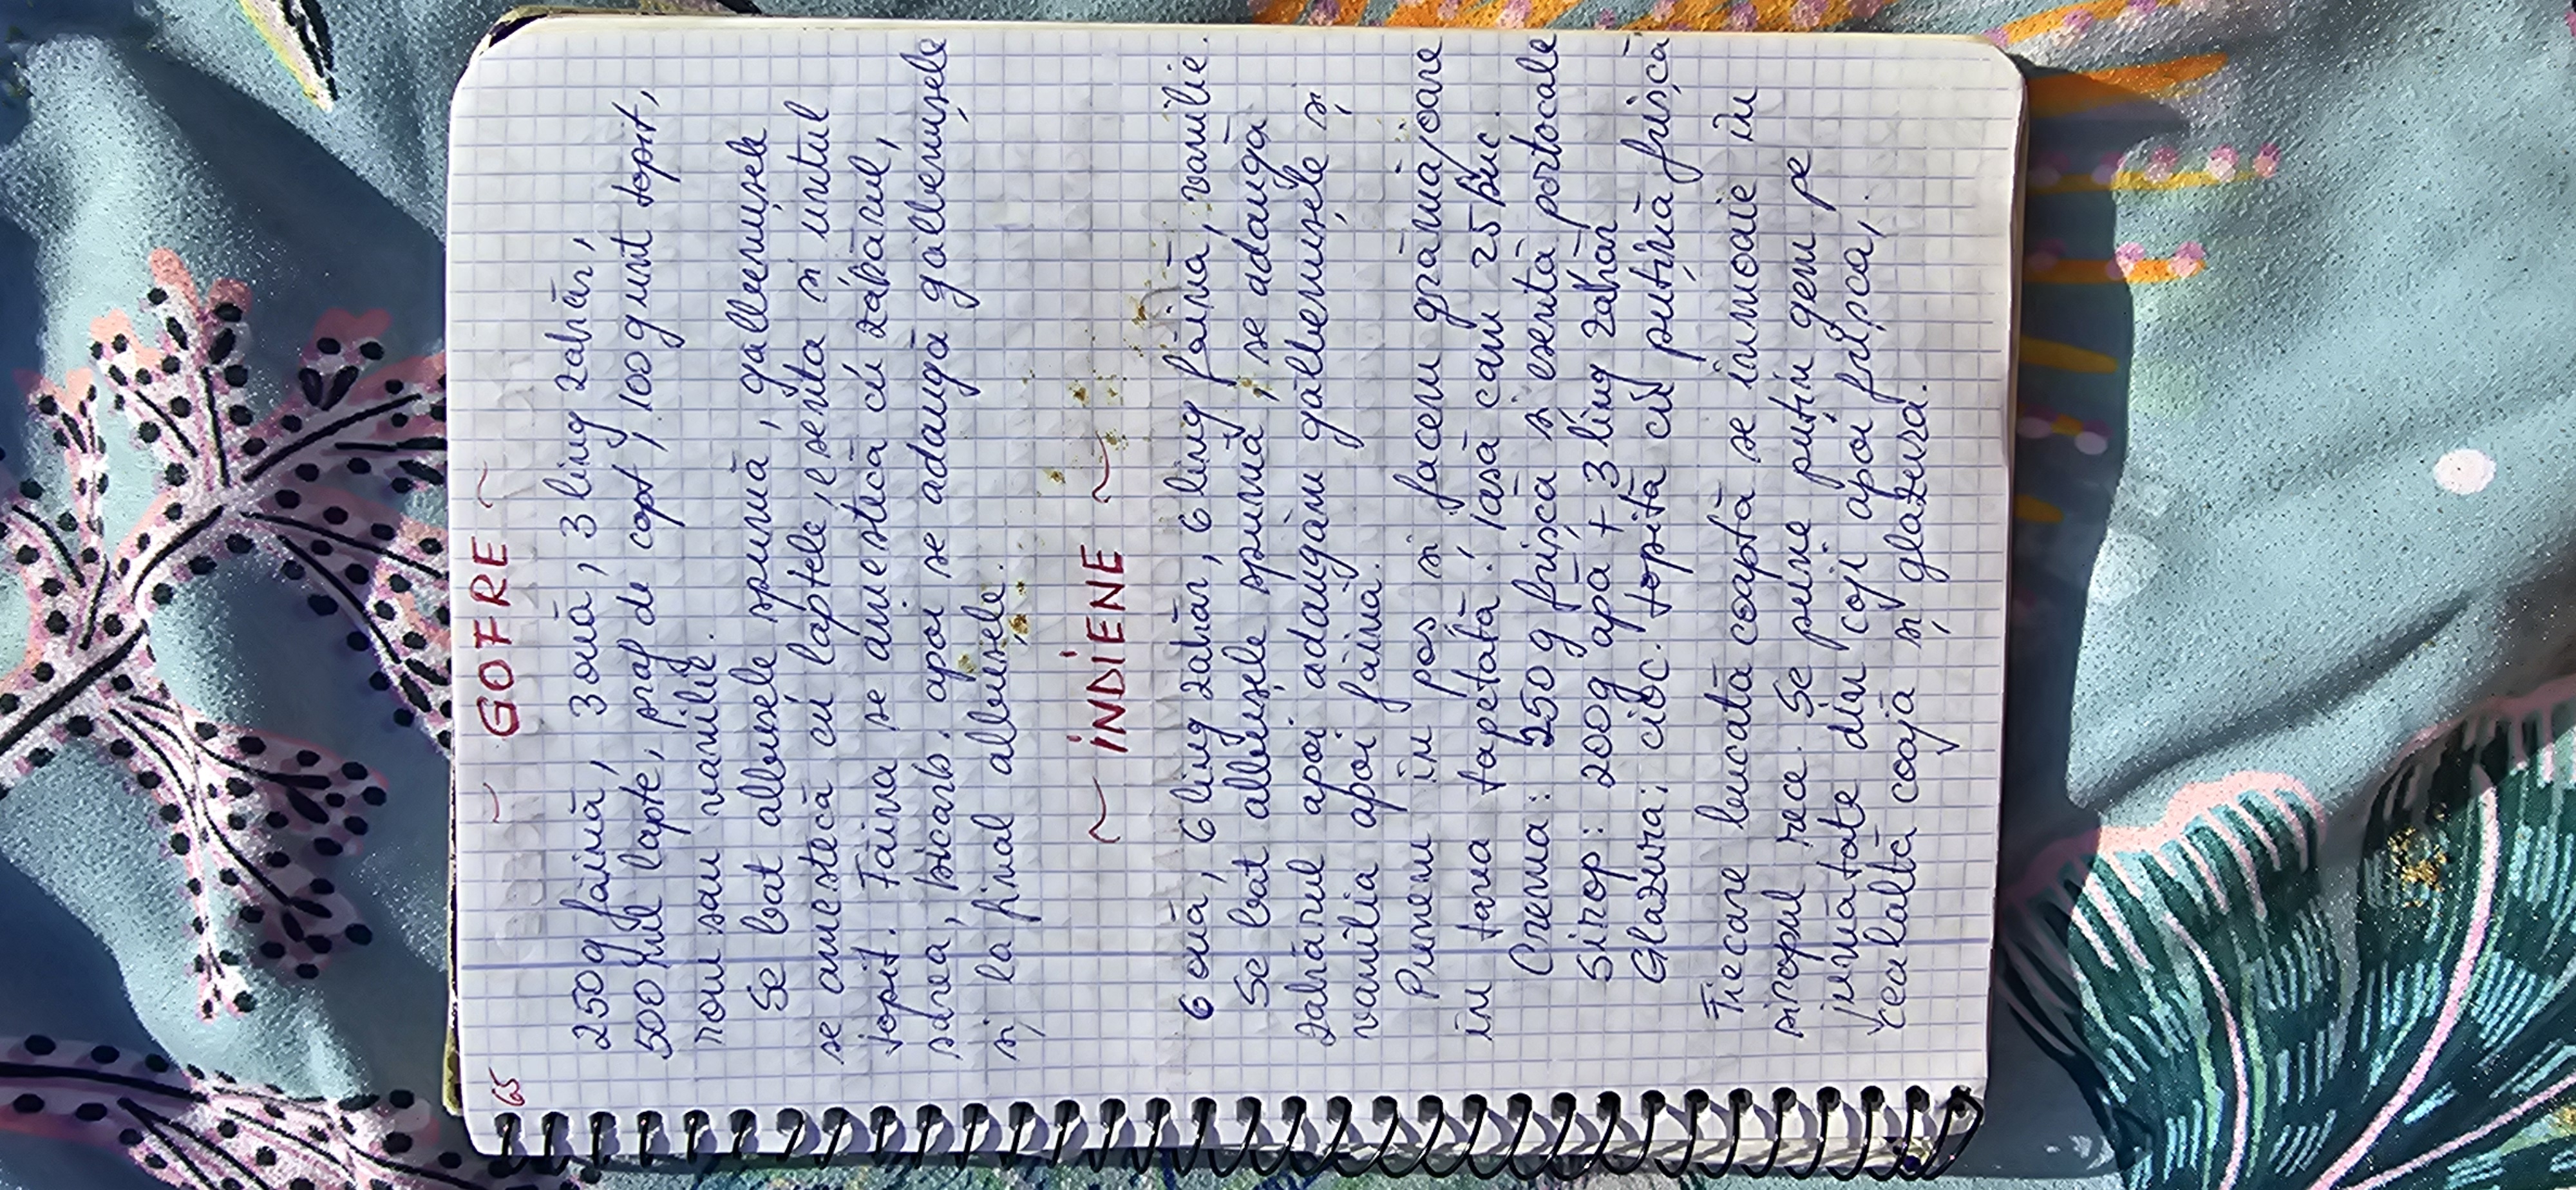 65
~ GOFRE ~
250g făină, 3 ouă, 3 ling zahăr,
500 ml lapte, praf de copt, 100 g unt topit,
rom sau vanilie.
Se bat albușele spumă, gălbenușele
se amestecă cu laptele, esența și untul
topit. Făina se amestecă cu zahărul,
sarea, bicarb. apoi se adaugă gălbenușele
și la final albușele.
~ INDIENE ~
6 ouă, 6 ling zahăr, 6 ling făină, vanilie.
Se bat albușele spumă, se adaugă
zahărul apoi adaugăm gălbenușele și
vanilia apoi făină.
Punem în poș și facem grămăjoare
în tava tapetată. Iasă cam 25 buc.
Crema: 250 g frișcă și esență portocale
Sirop: 200g apă + 3 ling zahăr
Glazura: cioc. topită cu puțină frișcă
Fiecare bucată coaptă se înmoaie în
siropul rece. Se pune puțin gem pe
jumătate din coji apoi frișca,
cealaltă coajă și glazura.